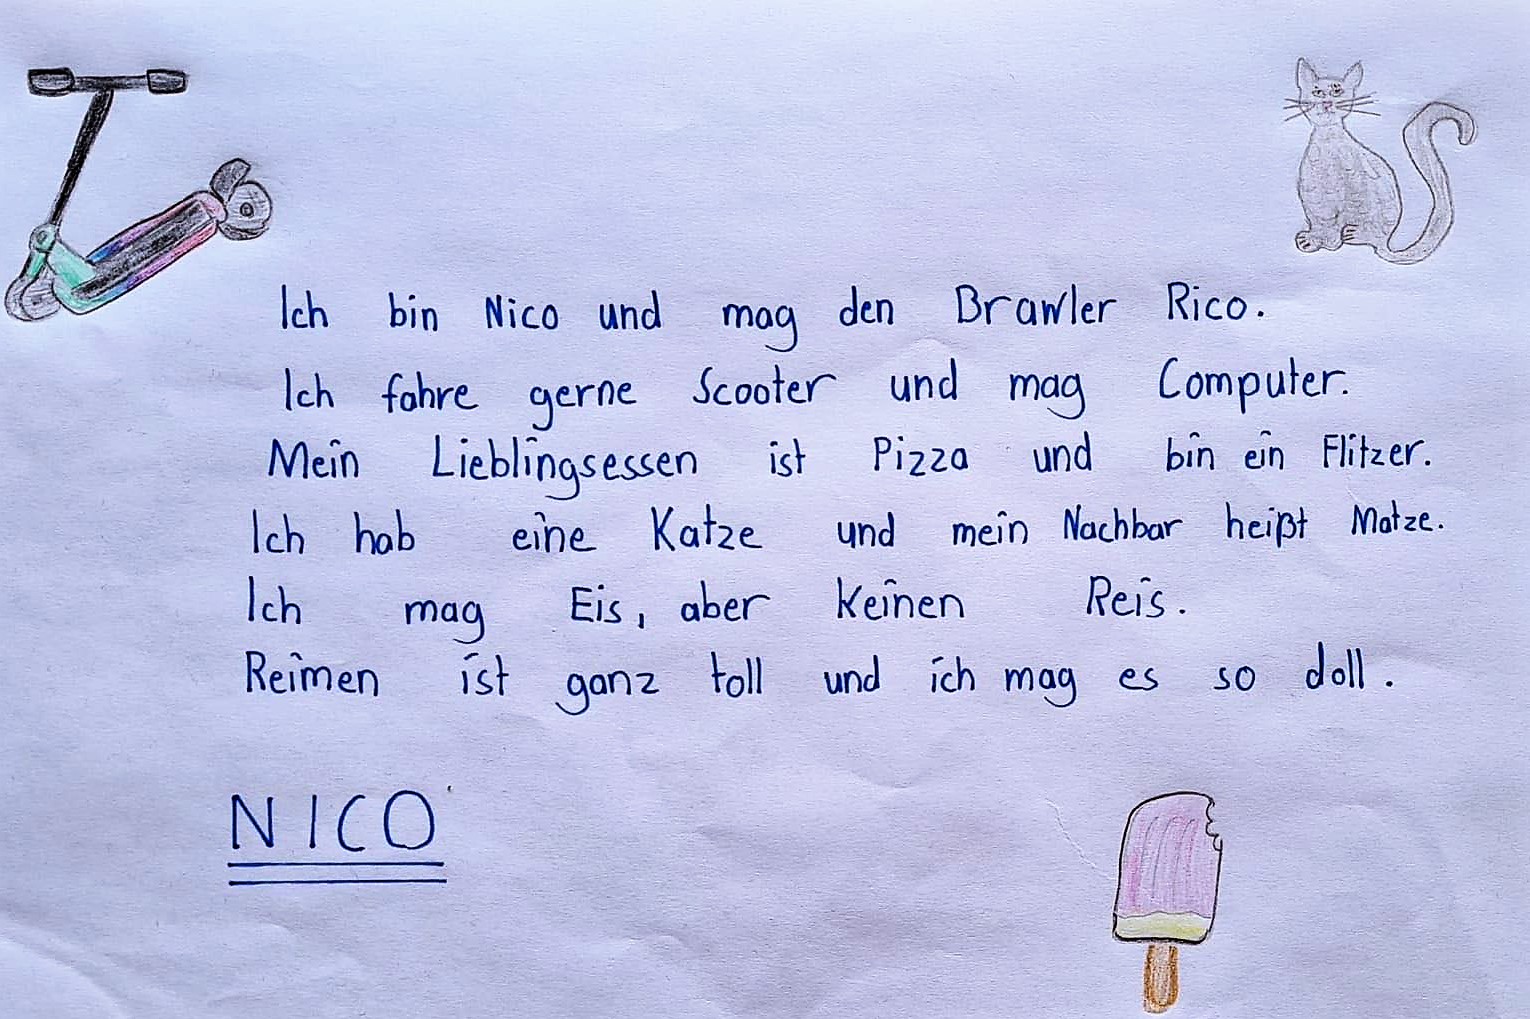 Ich bin Nico und mag den Brawler Rico.
Ich fahre gerne Scooter und mag Computer.
Mein Lieblingsessen ist Pizza und bin ein Flitzer.
Ich hab eine Katze und mein Nachbar heißt Matze.
Ich mag Eis, aber keinen Reis.
Reimen ist ganz toll und ich mag es so doll.
NICO